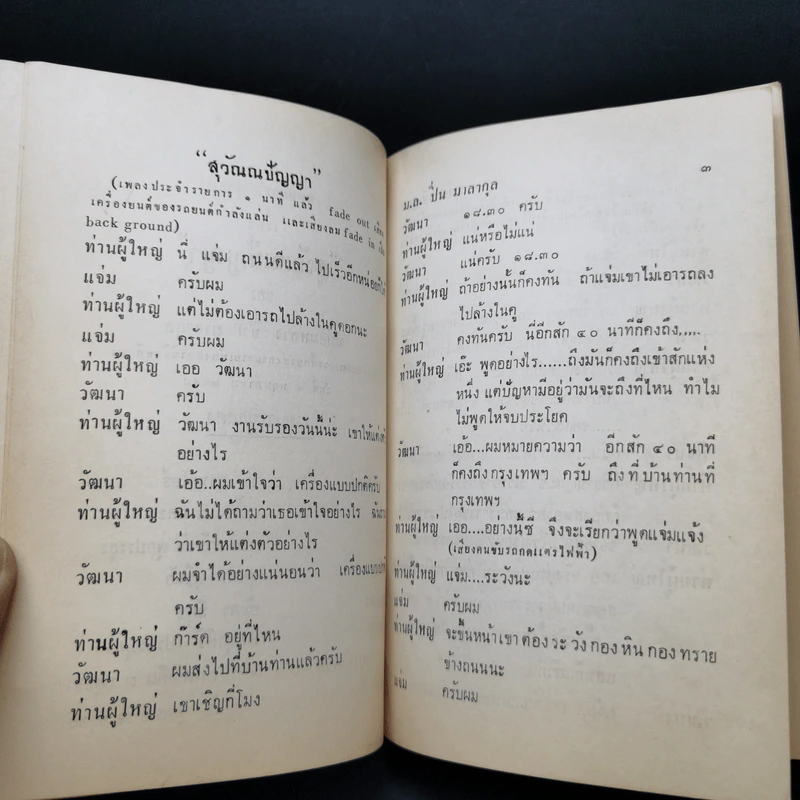 “สุวัณณปัญญา”
(เพลงประจำรายการ ๑ นาที แล้ว fade out
เครื่องยนต์ของรถยนต์กำลังแล่น และเสียงลม fade in
back ground)
ท่านผู้ใหญ่ นี่ แจ่ม ถนนดีแล้ว ไปเร็วอีกหน่อย
แจ่ม ครับผม
ท่านผู้ใหญ่ แต่ไม่ต้องเอารถไปล้างในคูดอกนะ
แจ่ม ครับผม
ท่านผู้ใหญ่ เออ วัฒนา
วัฒนา ครับ
ท่านผู้ใหญ่ วัฒนา งานรับรองวันนี้น่ะ เขาให้แต่งตัว
อย่างไร
วัฒนา เอ้อ..ผมเข้าใจว่า เครื่องแบบปกติครับ
ท่านผู้ใหญ่ ฉันไม่ได้ถามว่าเธอเข้าใจอย่างไร
ว่าเขาให้แต่งตัวอย่างไร
วัฒนา ผมจำได้อย่างแน่นอนว่า เครื่องแบบปกติ
ครับ
ท่านผู้ใหญ่ ก๊าร์ด อยู่ที่ไหน
วัฒนา ผมส่งไปที่บ้านท่านแล้วครับ
ท่านผู้ใหญ่ เขาเชิญกี่โมง
ม.ล. ปิ่น มาลากุล ๓
วัฒนา ๑๘.๓๐ ครับ
ท่านผู้ใหญ่ แน่หรือไม่แน่
วัฒนา แน่ครับ ๑๘.๓๐
ท่านผู้ใหญ่ ถ้าอย่างนั้นก็คงทัน ถ้าแจ่มเขาไม่เอารถลง
ไปล้างในคู
วัฒนา คงทันครับ นี่อีกสัก ๔๐ นาทีก็คงถึง.....
ท่านผู้ใหญ่ เอ๊ะ พูดอย่างไร.....ถึงมันก็คงถึงเข้าสักแห่ง
หนึ่ง แต่ปัญหามีอยู่ว่ามันจะถึงที่ไหน ทำไม
ไม่พูดให้จบประโยค
วัฒนา เอ้อ...ผมหมายความว่า อีกสัก ๔๐ นาที
ก็คงถึงกรุงเทพฯ ครับ ถึงที่บ้านท่านที่
กรุงเทพฯ
ท่านผู้ใหญ่ เออ...อย่างนี้ซี จึงจะเรียกว่าพูดแจ่มแจ้ง
(เสียงคนขับรถกดแตรไฟฟ้า)
ท่านผู้ใหญ่ แจ่ม....ระวังนะ
แจ่ม ครับผม
ท่านผู้ใหญ่ จะขึ้นหน้าเขาต้องระวังกองหินกองทราย
ข้างถนนนะ
แจ่ม ครับผม